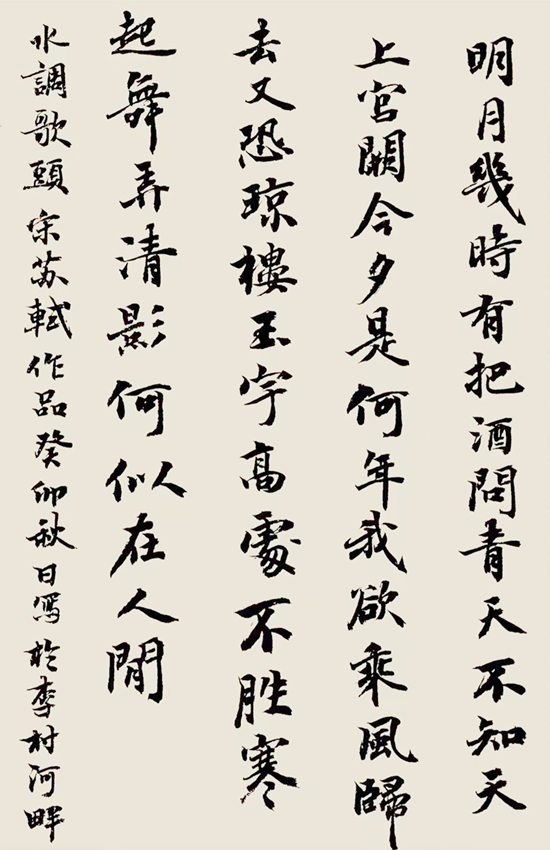 明月幾時有把酒問青天不知天
上宮闕今夕是何年我欲乘風歸
去又恐琼樓玉宇高處不胜寒
起舞弄清影何似在人間
水調歌頭宋苏軾作品癸卯秋日寫於李村河畔